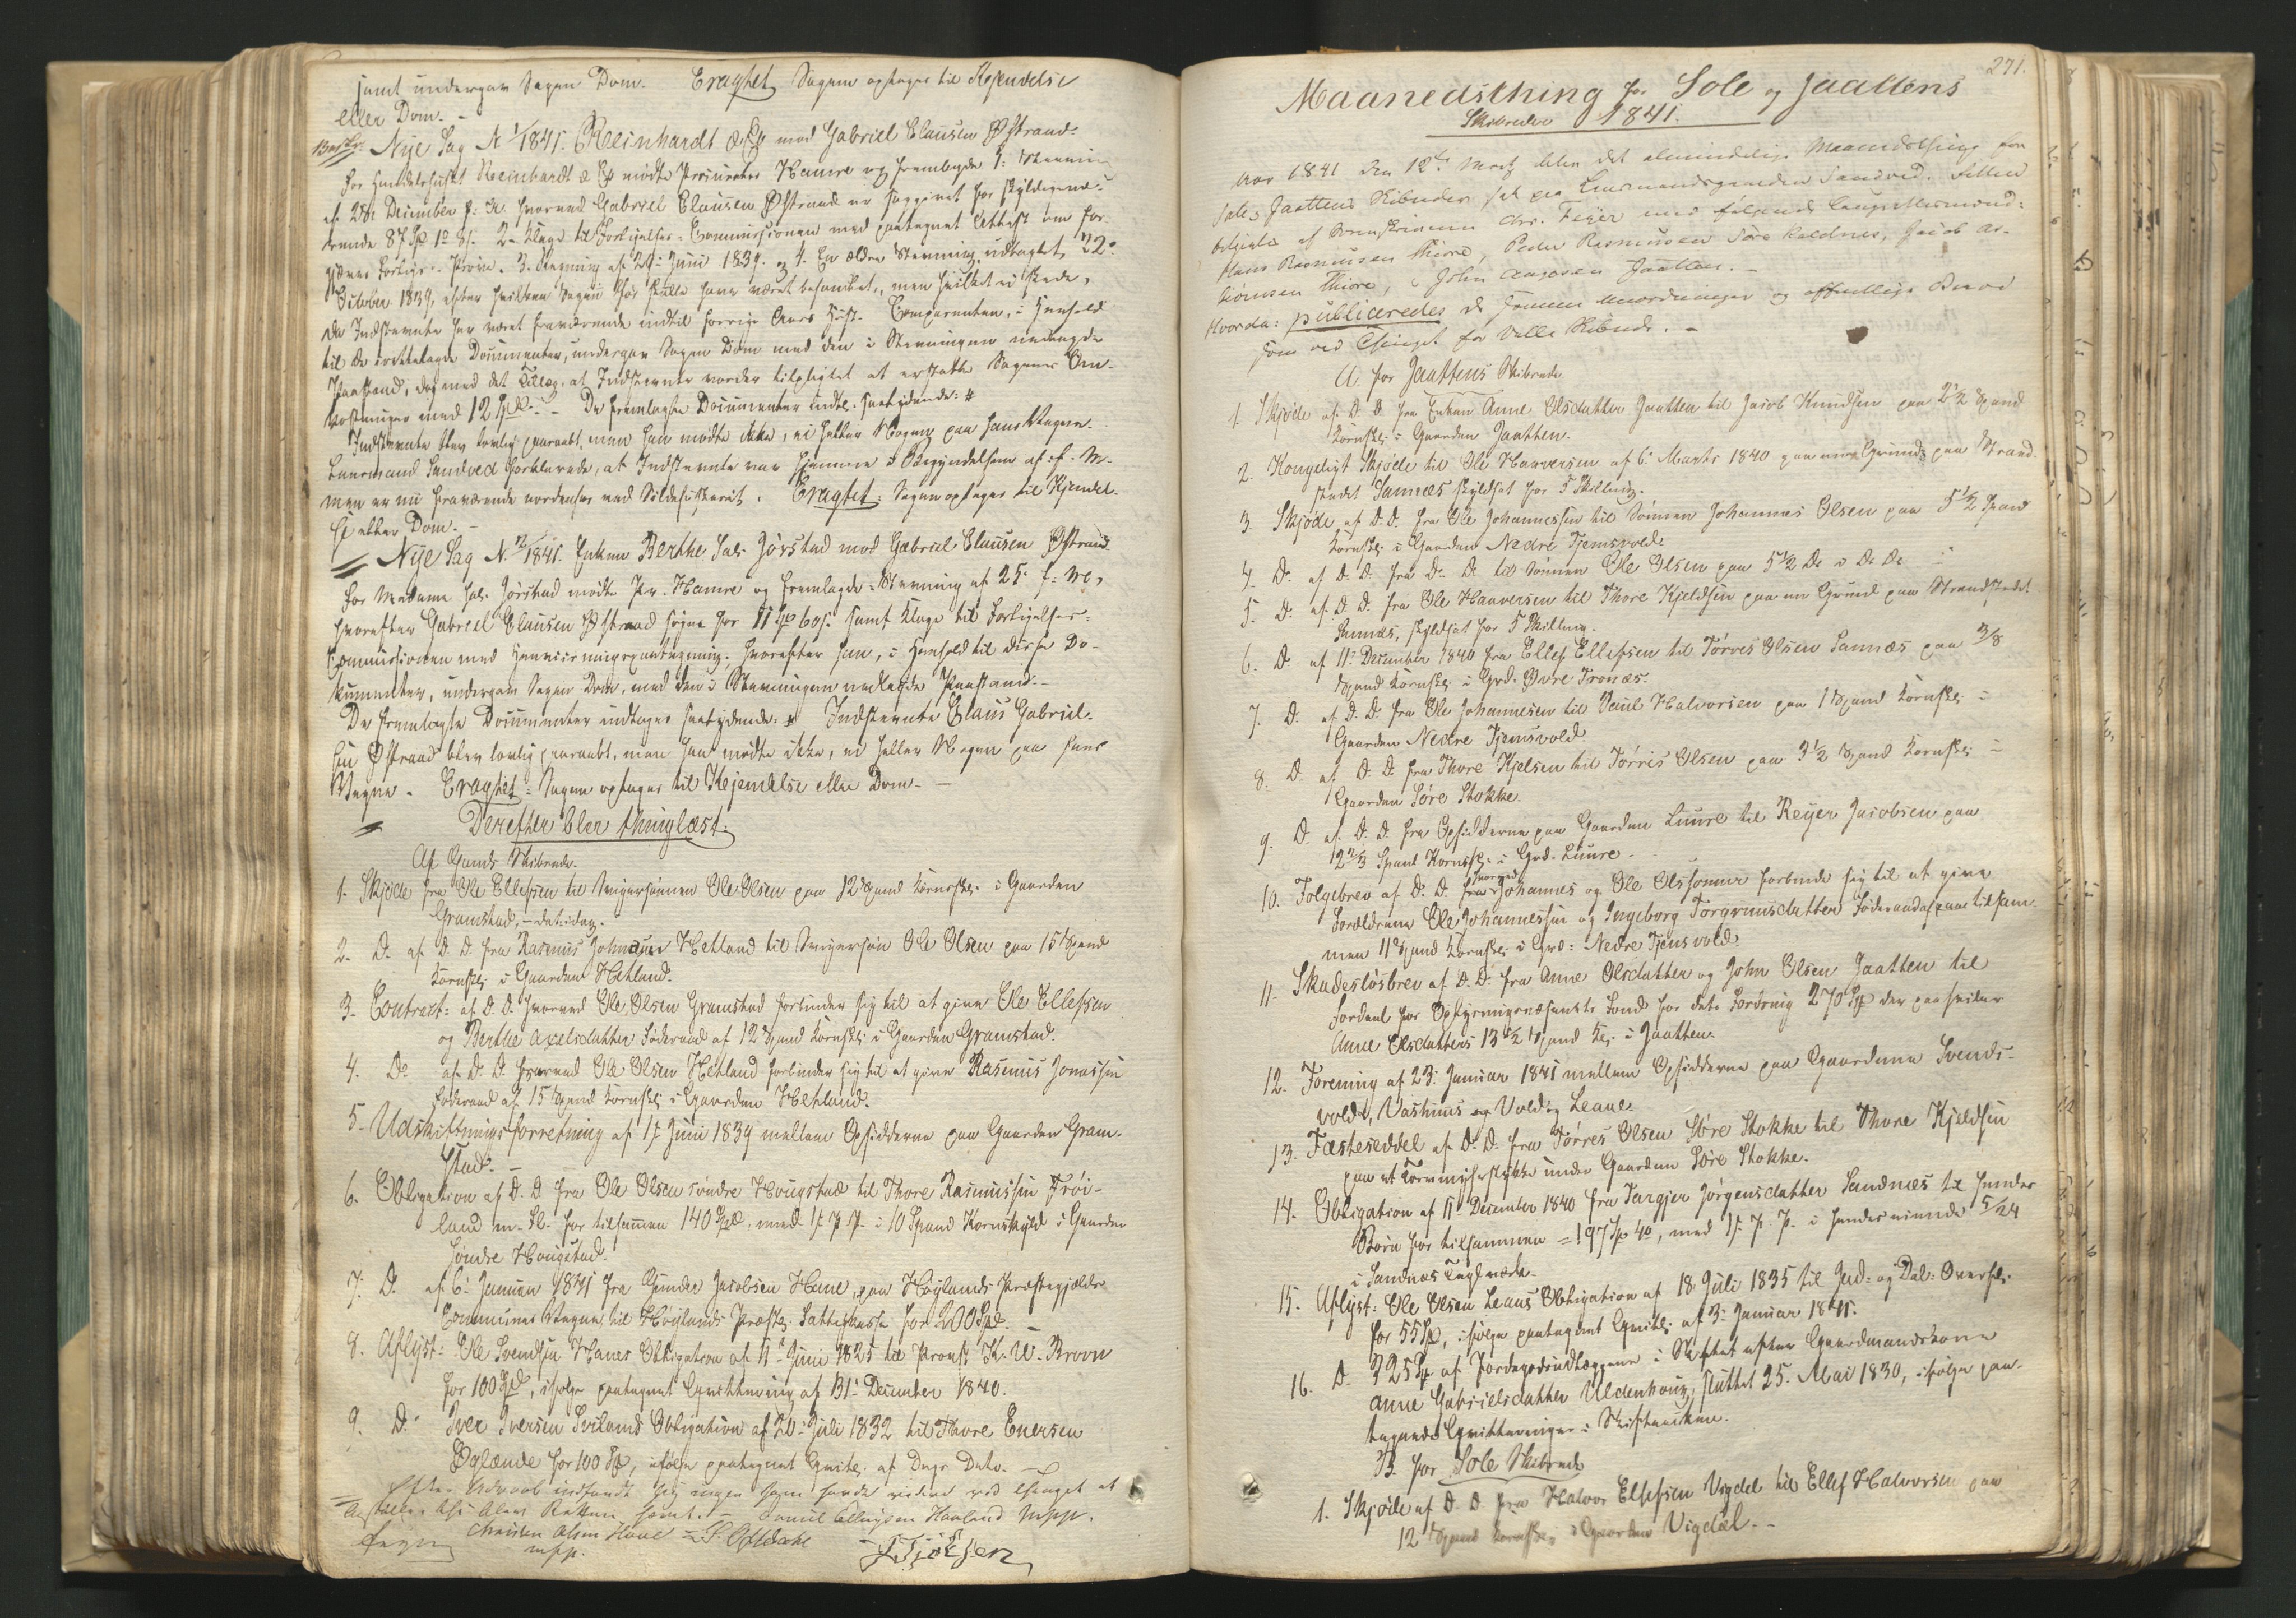 samt undergav Sagen Dom. Eragtet Sagen optages til Kjendelse
eller Dom. -
Nye Sag № 1/1841. Reinhardt & Co mod Gabriel Clausen Østraad.
For Handelshuset Reinhardt & Co mødte Procurator Hamre og fremlagde 1: Stævning
af 28de December f: A. hvorved Gabriel Clausen Østraad er sagsøgt for skyldigværende
87 Sp 1 # 8 s. 2 - Klage til Forligelses-Commissionen med paategnet Attest om
3. Stævning af 24 Juni 1839. og 4. En ældre Stævning udtaget 22.
October 1839, efter hvilken Sagen skulde have været behandlet, men hvilket ei skede,
da Indstævnte har været fraværende indtil forrige Aars Høst. Comparenten, i Henhold
til de irettelagte Documenter, undergav Sagen Dom med den i Stævningen nedlagde
Paastand, dog med det Tillæg, at Indstævnte vorder tilpligtet at erstatte Sagens Om-
kostninger med 12 Spd. - De fremlagte Documenter indtl. saalydende: #
Indstævnte blev lovlig paaraabt, men han mødte ikke, ei heller Nogen paa hans Vegne.
Lensmand Sandved forklarede, at Indstævnte var hjemme i Begyndelsen af f. M.
men er nu fraværende nordenfor ved Sildefiskeriet. Eragtet: Sagen optages til Kjendel-
se eller Dom. -
Nye Sag № 2/1841. Enken Berthe Sal. Jørstad mod Gabriel Clausen Østraad
For Madame Sal. Jørstad mødte Pr. Hamre og fremlagde: Stævning af 25 f: M,
hvorefter Gabriel Clausen Østraad søges for 11 Sp 60 s. samt Klage til Forligelses-
Commissionen med Henviisningspaategning, hvorefter han, i Henhold til disse Do-
kumenter, undergav Sagen Dom, med den i Stævningen nedlagde Paastand. -
De fremlagte Documenter indtages saalydende: # Indstævnte Claus Gabriel-
sen Østraad blev lovlig paaraabt, men han mødte ikke, ei heller Nogen paa hans
Vegne. Eragtet: Sagen optages til Kjendelse eller Dom. -
Derefter blev thinglæst:
Af Gands Skibrede.
1. Skjøde fra Ole Ellefsen til Svigersønnen Ole Olsen paa 12 Spand Kornsk. i Gaarden
Gramstad, - dat. idag.
2. Do. af D. D. fra Rasmus Johnsen Hetland til Svigersøn Ole Olsen paa 15 Spand
Kornsk. i Gaarden Hetland.
3. Contract: af D. D. hvorved Ole Olsen Gramstad forbinder sig til at give Ole Ellefsen
og Berthe Axelsdatter Føderaad af 12 Spand Kornsk. i Gaarden Gramstad.
4. Do af D. D. hvorved Ole Olsen Hetland forbinder sig til at give Rasmus Jonassen
Føderaad af 15 Spand Kornsk. i Gaarden Hetland.
5. Udskiftningsforretning af 17 Juni 1839 mellem Opsidderne paa Gaarden Gram-
stad. -
6. Obligation af D. D. fra Ole Olsen søndre Hougstad til Thore Rasmussen Frøi-
land m. Fl. for tilsammen 140 Spd. med 1s. P. P. i 10 Spand Kornskyld i Gaarden
Søndre Hougstad.
7. Do. af 6 Januar 1841 fra Gunder Jacobsen Hane, paa Høylands Præstegjelds
Communes Vegne, til Høylands Præstg. Fattigkasse for 200 Spd. -
8. Aflyst: Ole Svendsen Hanes Obligation af 11 Juni 1825 til Provst K. W. Brown
for 100 Spd, ifølge paategnet Qvittering af 31 December 1840.
9. D. Iver Iversen Svilands Obligation af 20 Juli 1832 til Thore Enersen
Øglænde for 100 Sp, ifølge paategnet Qvitt. af Dags Dato. -
Efter Udraab indfandt sig ingen som havde videre ved Thinget at
bestille, thi blev Retten hævet. - Daniel Ellingsen Haaland mpp.
Christen Olsen Hove
mpp.
271.
Maanedsthing for Sole og Jaattens
Skibreder 1841.
Aar 1841 den 12te Marts blev det almindelige Maanedsthing for
Sole og Jaattens Skibreder sat paa Lensmandsgaarden Sandved. Retten
betjent af Sorenskriveren Chr. Feyer med følgende Laugrettesmænd:
Hans Rasmussen Thiore, Peder Rasmussen Søre Koldnes, Jacob As-
biørnsen Thiore, John Aagesen Jaatten. -
Hvorda: publiceredes de samme Anordninger og offentlige Breve
som ved Thinget for Valle Skibrede. -
A. for Jaattens Skibrede
1. Skjøde af D. D. fra Enken Anne Olsdatter Jaatten til Jacob Knudsen paa 2½ Spand
Kornsk. i Gaarden Jaatten.
2. Kongeligt Skjøde til Ole Haaversen af 6 Marts 1840 paa en Grund paa Strand-
stedet Sannæs skyldsat for 5 Skilling.
3. Skjøde af D. D. fra Ole Johannessen til Sønnen Johannes Olsen paa 5½ Spand
Kornsk. i Gaarden Nedre Tjensvold.
4. Do. af D. D. fra D. D. til Sønnen Ole Olsen paa 5½ D. i D. D.
5. D. af D. D. fra Ole Haaversen til Thore Kjeldsen paa en Grund paa Strandstedet
Sannæs, skyldsat for 5 Skilling.
6. D. af 11 December 1840 fra Ellef Ellefsen til Tørres Olsen Sannæs paa 3/8
Spand Kornsk. i Grd. Øvre Tronæs.
7. D. af D. D. fra Ole Johannesen til Paul Halvorsen paa 1 Spand Kornsk. i
Gaarden Nedre Tjensvold
8. D. af D. D. fra Thore Kjelsen til Tørris Olsen paa 3½ Spand Kornsk. i
Gaarden Søre Stokke.
9. D. af D. D. fra Opsidderne paa Gaarden Luure til Reyer Jacobsen paa
12 2/3 Spand Kornsk. i Grd. Luure -
10. Følgebrev af D. D. hvorved Johannes og Ole Olssønner forbinde sig til at give
Forældrene Ole Johannessen og Ingeborg Torgrimsdatter Føderaad af paa tilsam-
men 11 Spand Kornsk. i Grd: Nedre Tjensvold
11. Skadesløsbrev af D. D. fra Anne Olsdatter og John Olsen Jaatten til
Fordeel for Oplysningsvæsenets Fond for dets Fordring 270 Sp der paahviler
Anne Olsdatters 13½ Spand K. i Jaatten.
12. Forening af 23 Januar 1841 mellem Opsidderne paa Gaardene Svends-
vold, Vashuus og Vold og Leane.
13. Fæsteseddel af D. D. fra Tørres Olsen Søre Stokke til Thore Kjeldsen
paa et Torvmyhrstykke under Gaarden Søre Stokke.
14. Obligation af 11 December 1840 fra Targjer Jørgensdatter Sandnæs til hendes
Børn for tilsammen = 197 Sp 4 #, med 1s. P. P. i hendes eiende 5/24
i Sandnæs Teglværk.
15. Aflyst: Ole Olsen Leans Obligation af 18 Juli 1835 til Jæd. og Dal. Overf.
for 55 Sp, ifølge paategnet Qvitt. af 3 Januar 1841.
16. D. 325 Sp af Jordegodsudlæggene i Skiftet efter Gaardmandskone
Anne Gabrielsdatter Uldenhoug, sluttet 25. Mai 1830, ifølge paa-
tegnede Qvitteringer i Skifteacten.
B. for Sole Skibrede
1. Skjøde af D. D. fra Halvor Ellefsen Vigdel til Ellef Halvorsen paa
12 Spand Kornsk. i Gaarden Vigdel. -